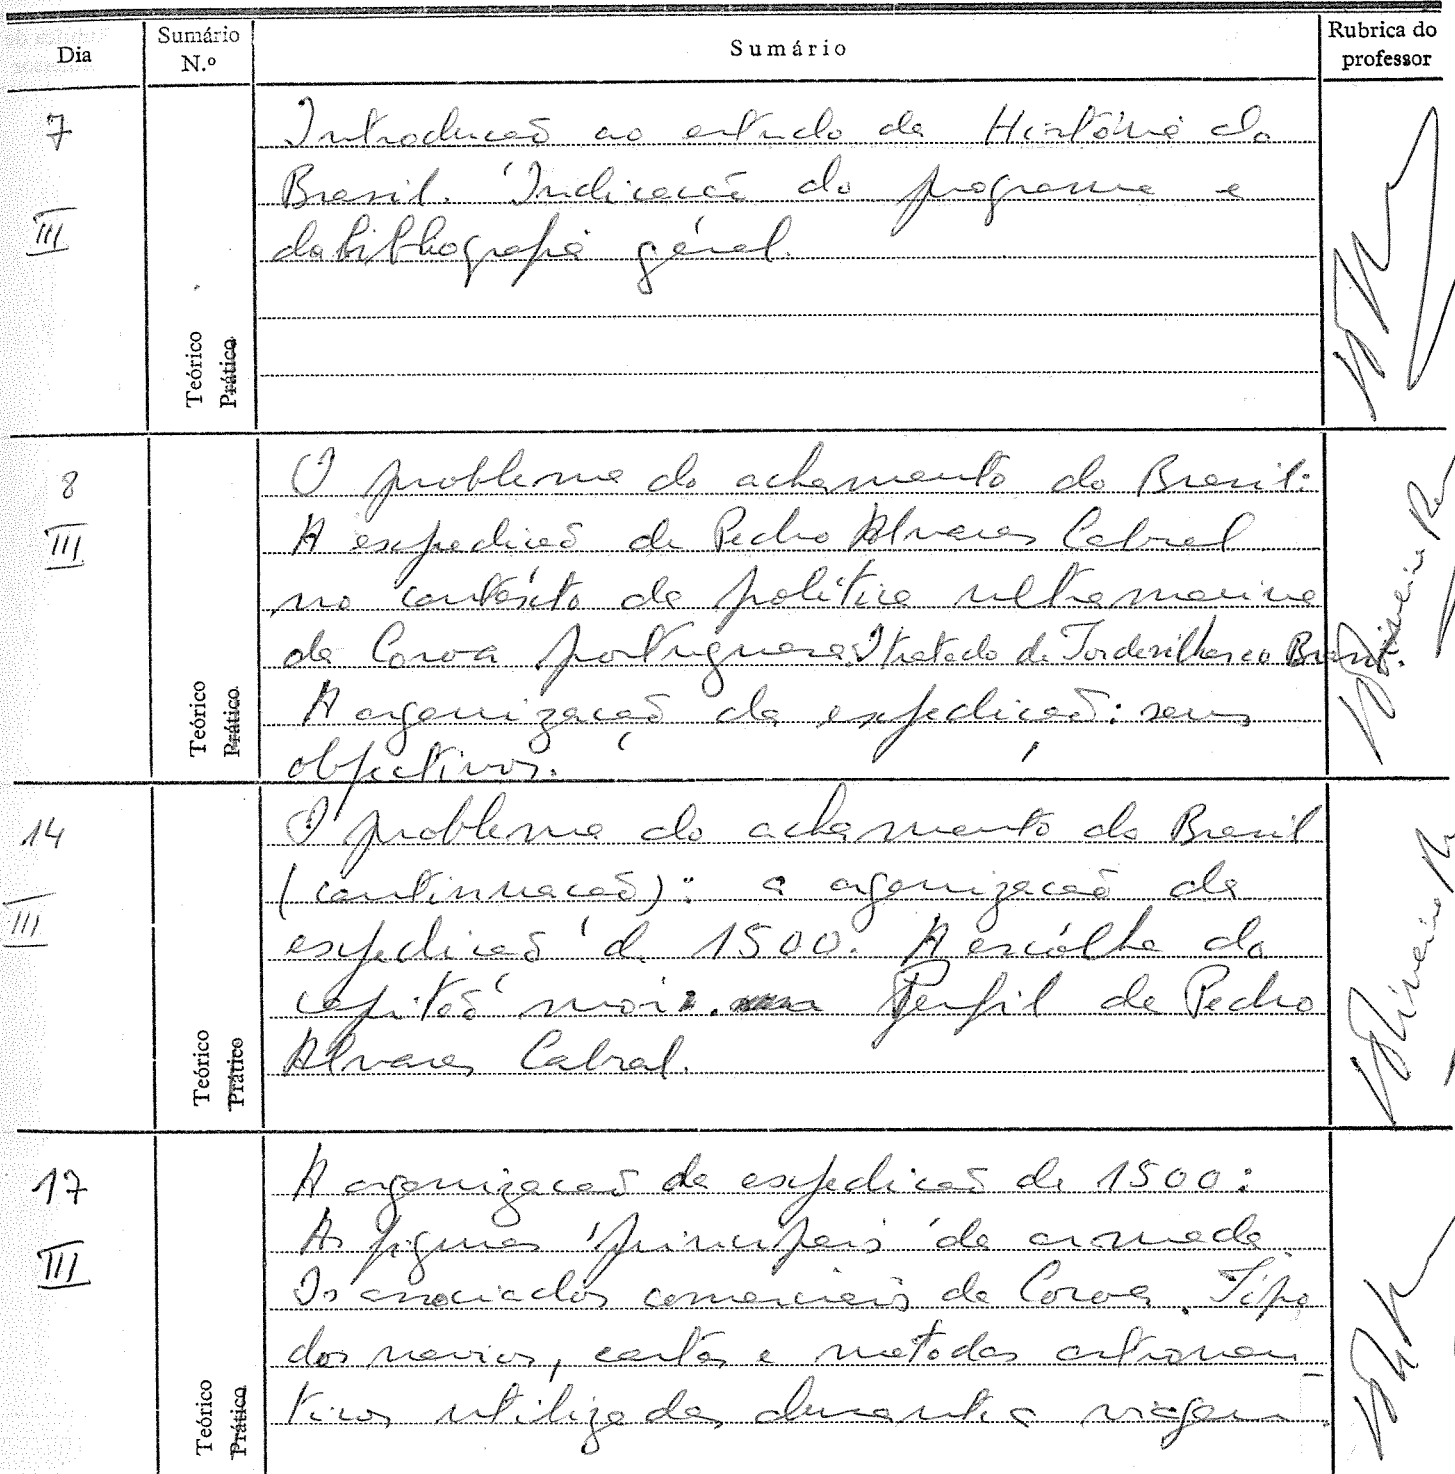 Dia
Sumário
N.º
Sumário
Rubrica do
professor
7
III
Teórico
Prático
Introdução ao estudo da História do
Brasil. Indicação do programa e
da bibliografia géral.
8
III
Teórico
Prático
O problema do achamento do Brasil:
A expedição de Pedro Alvares Cabral
no contexto da política ultramarina
da Coroa portuguesa. O tratado de Tordesilhas e o Brasil.
A organização da expedição: seus
objectivos.
14
III
Teórico
Prático
O problema do achamento do Brasil
(continuação): a organização da
expedição de 1500. A escolha do
capitão mor. Perfil de Pedro
Alvares Cabral.
17
III
Teórico
Prático
A organização da expedição de 1500:
As figuras principais da armada.
Os associados comerciais da Coroa. Tipo
dos navios, cartas e metodos astronau-
ticos utilizados durante a viagem.